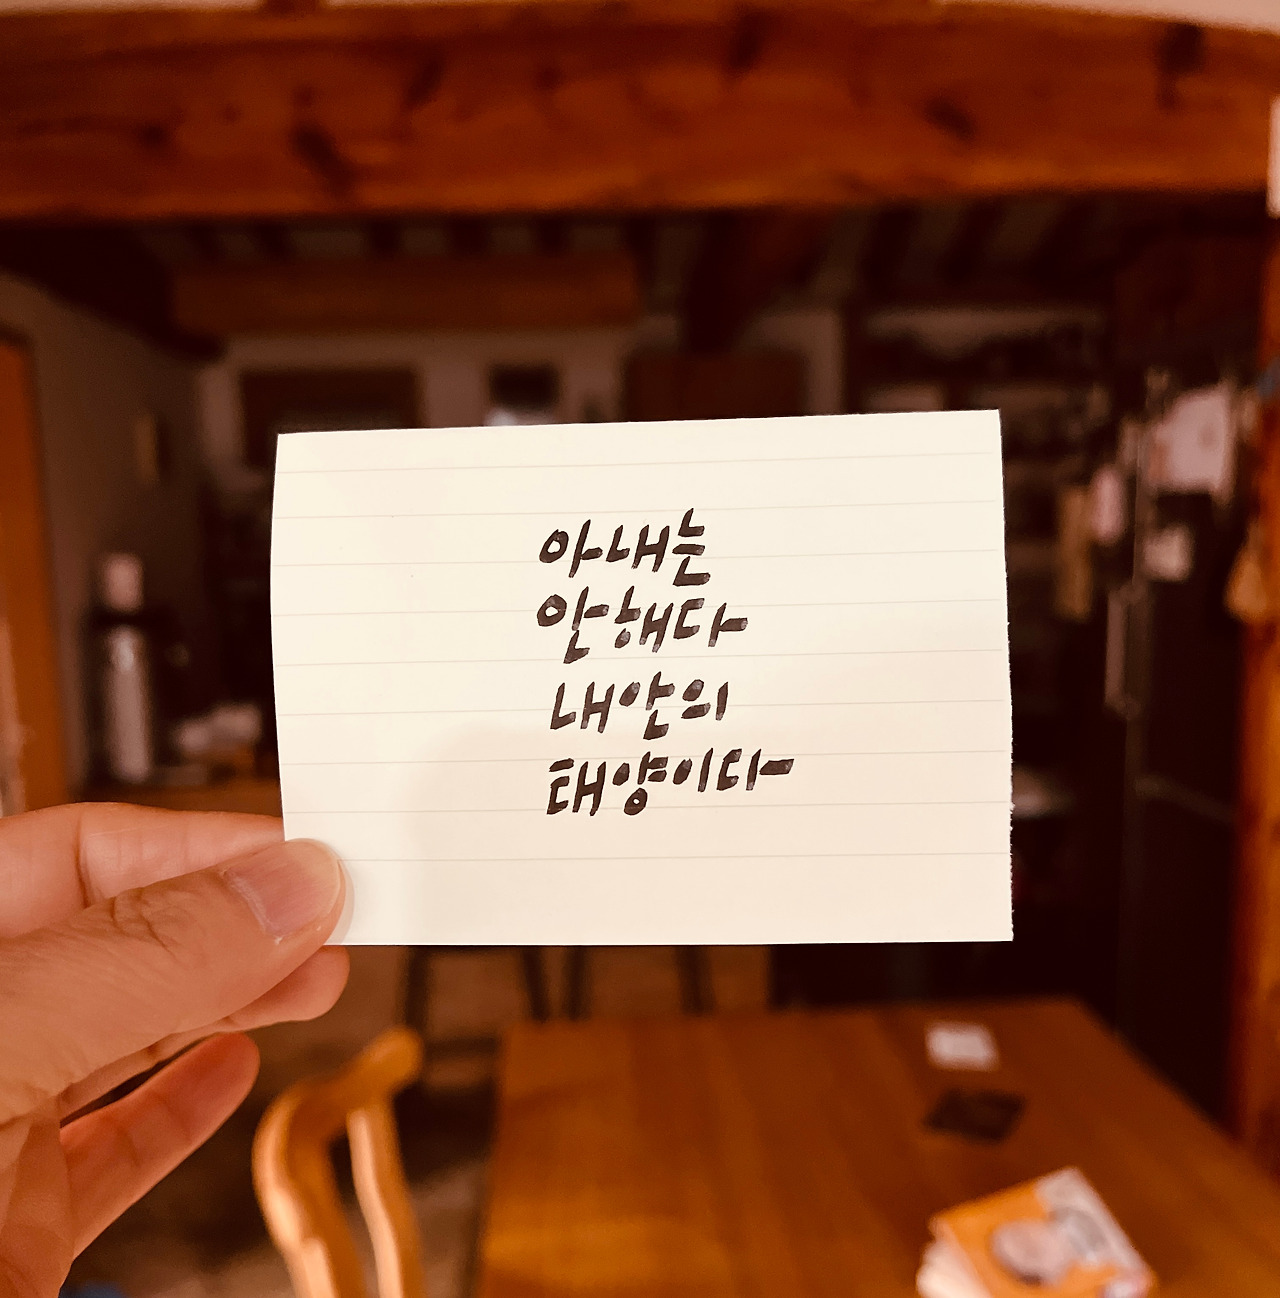 아내는
안해다
내안의
태양이다